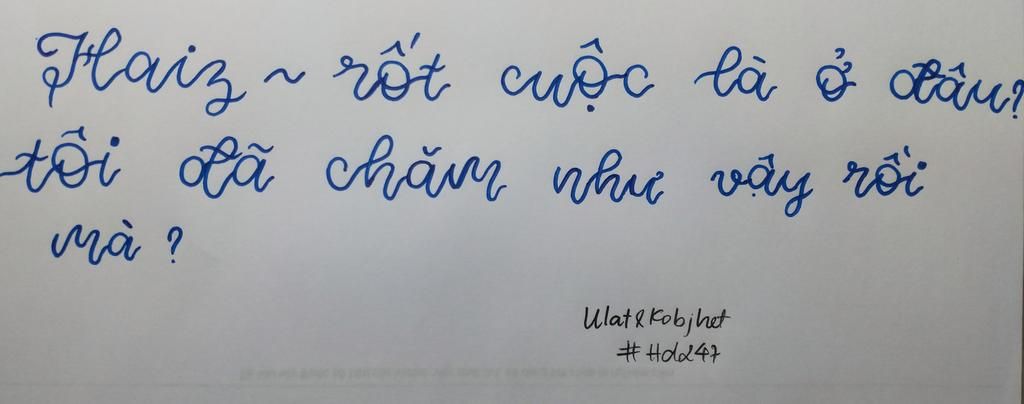 Haiz ~ rốt cuộc là ở đâu?
tôi đã chăm như vậy rồi
mà ?
Ulat&Kobjhet
#Hd247